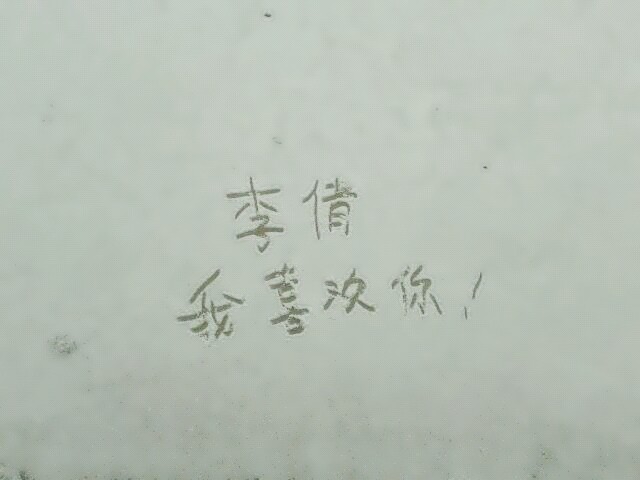 李倩
我喜欢你!